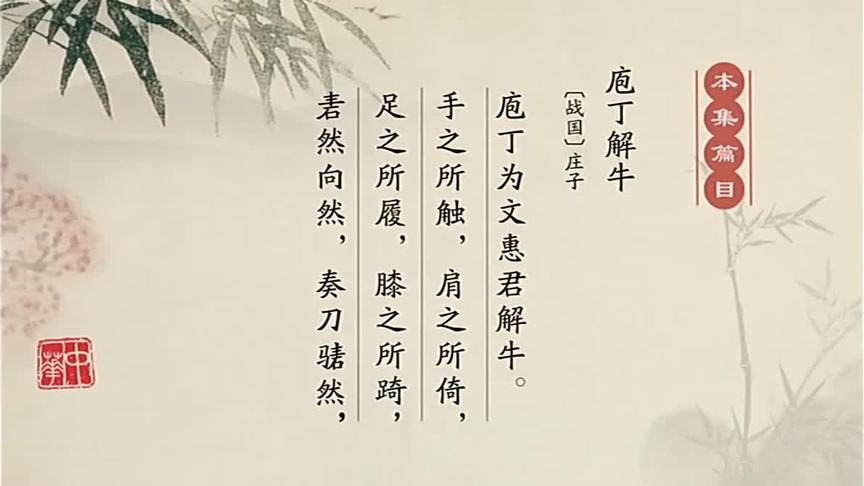 本集篇目
庖丁解牛
〔战国〕庄子
庖丁为文惠君解牛。
手之所触，肩之所倚，
足之所履，膝之所踦，
砉然向然，奏刀騞然，
中华